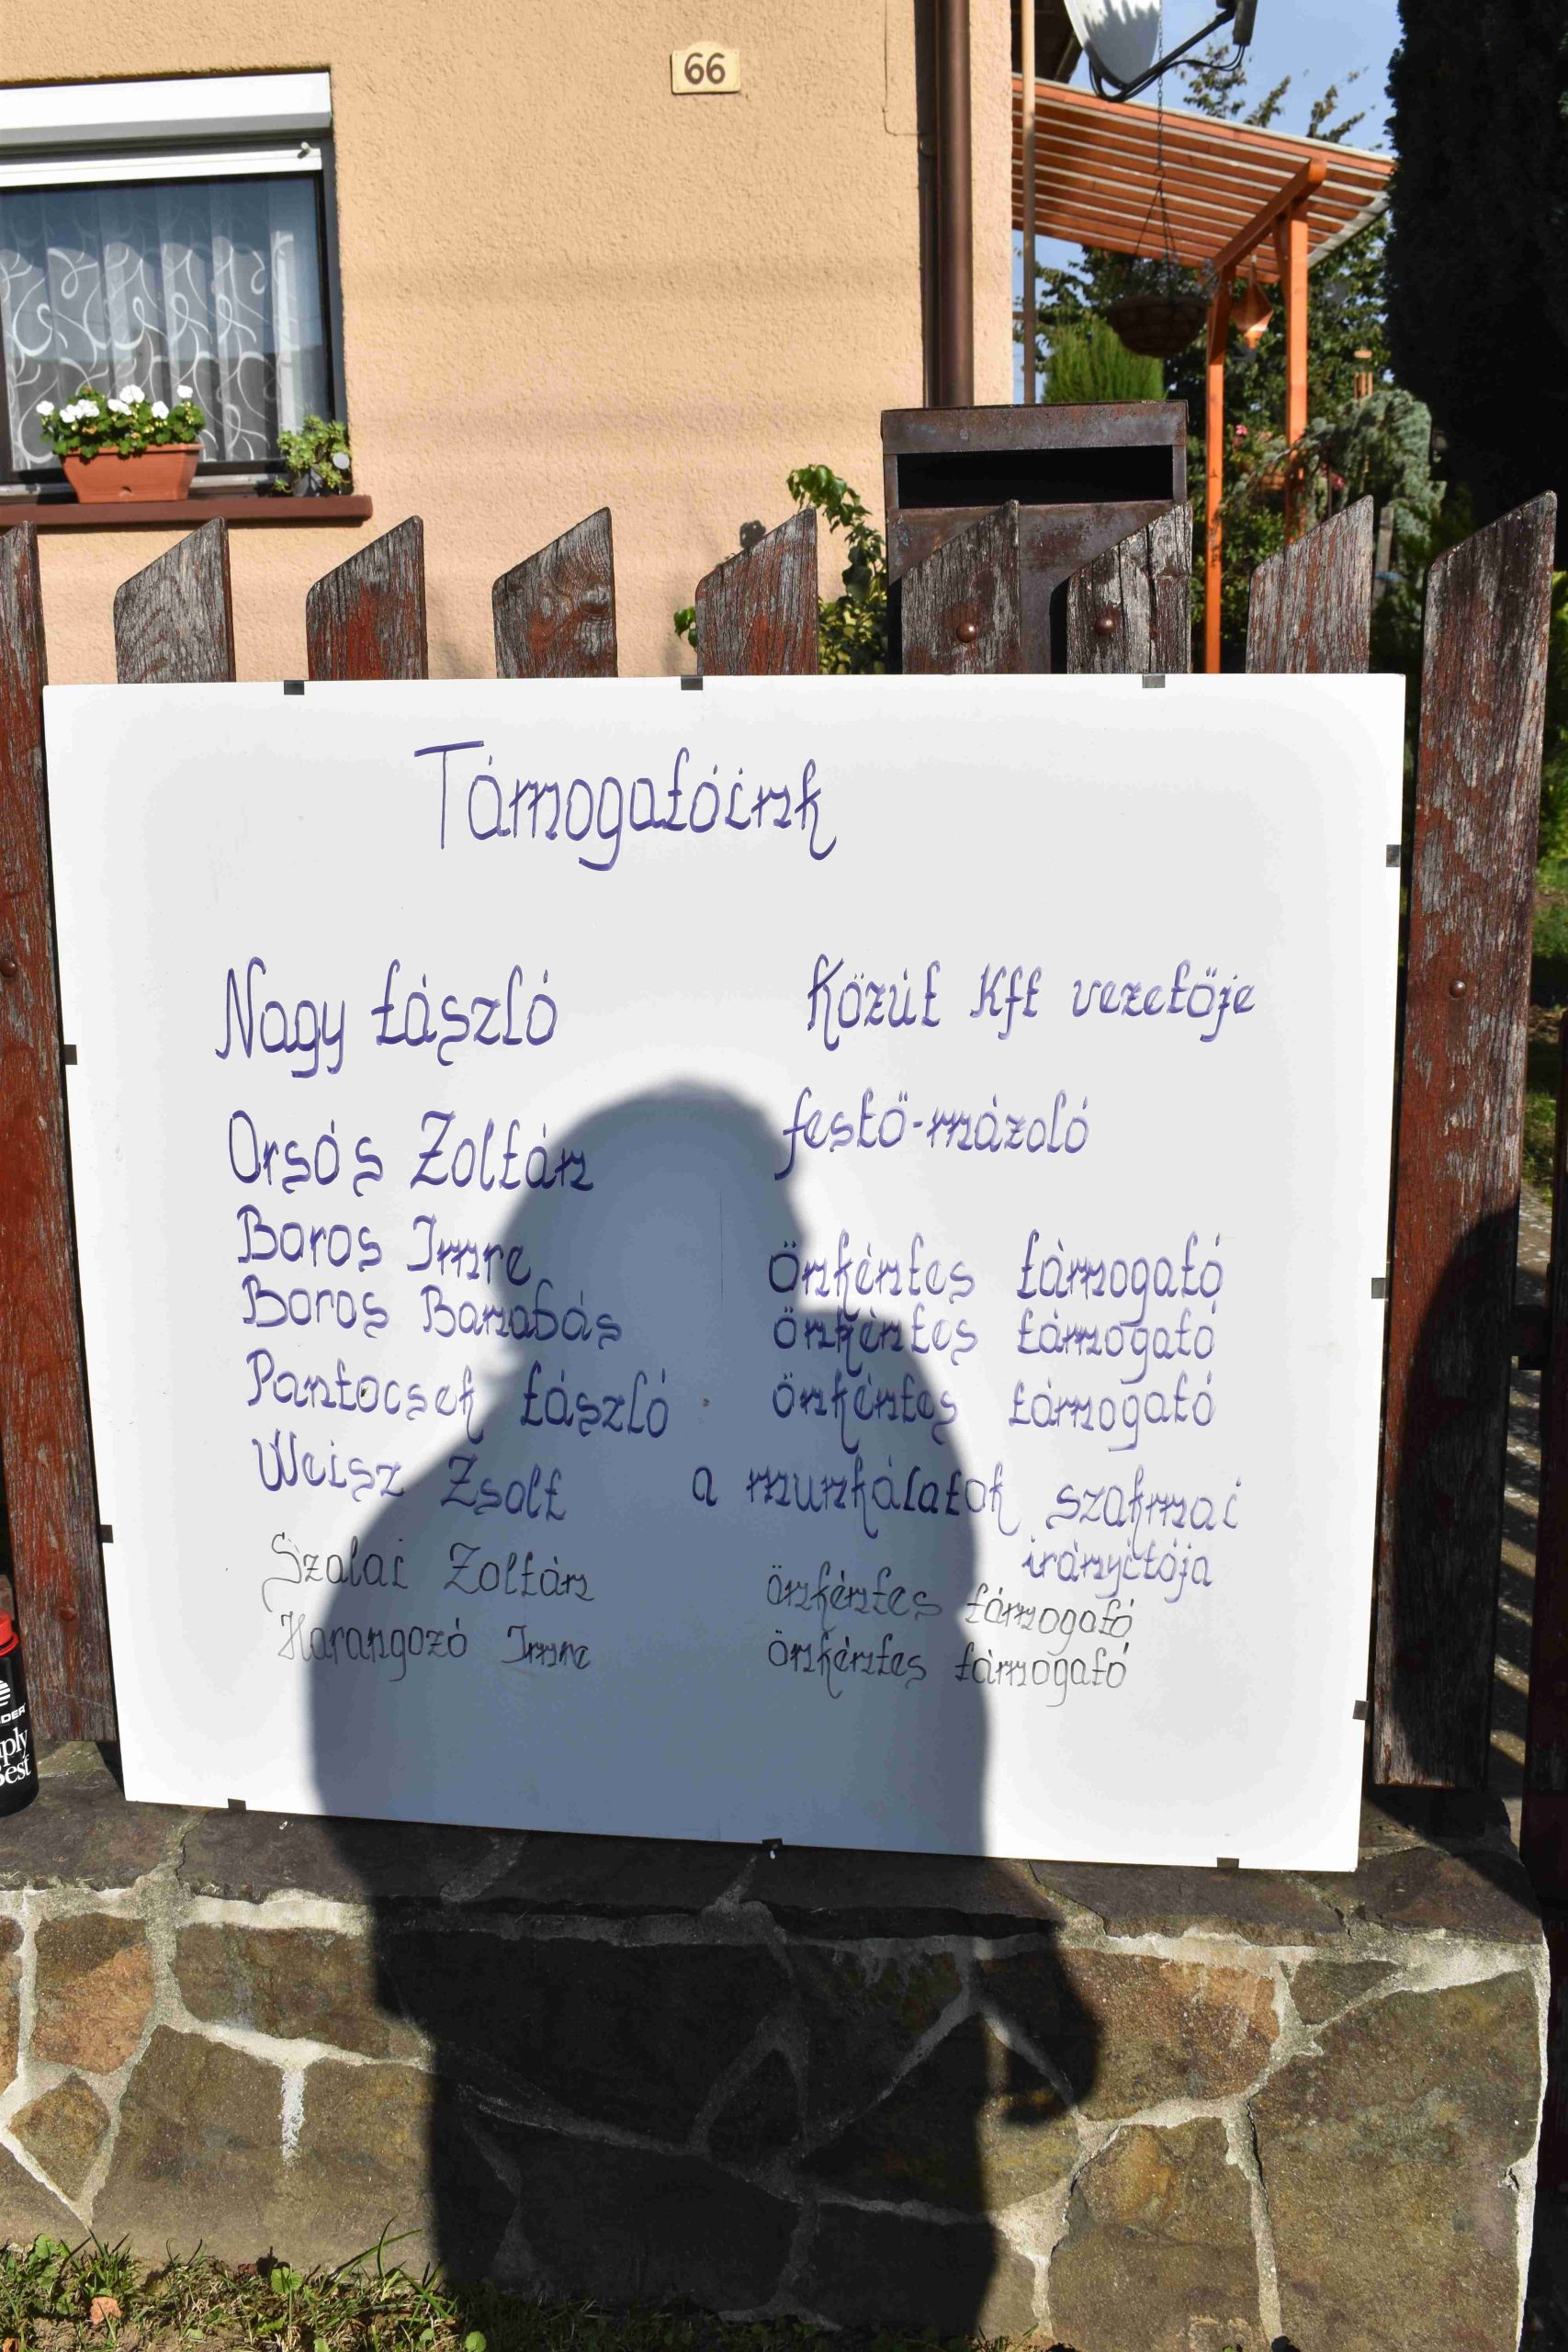 66
Támogatóink
Nagy László Közút Kft vezetője
Orsós Zoltán festő-mázoló
Boros Imre önkéntes támogató
Boros Barnabás önkéntes támogató
Pantocsek László önkéntes támogató
Weisz Zsolt a munkálatok szakmai
irányítója
Szalai Zoltán önkéntes támogató
Harangozó Imre önkéntes támogató
DER
ply
Best